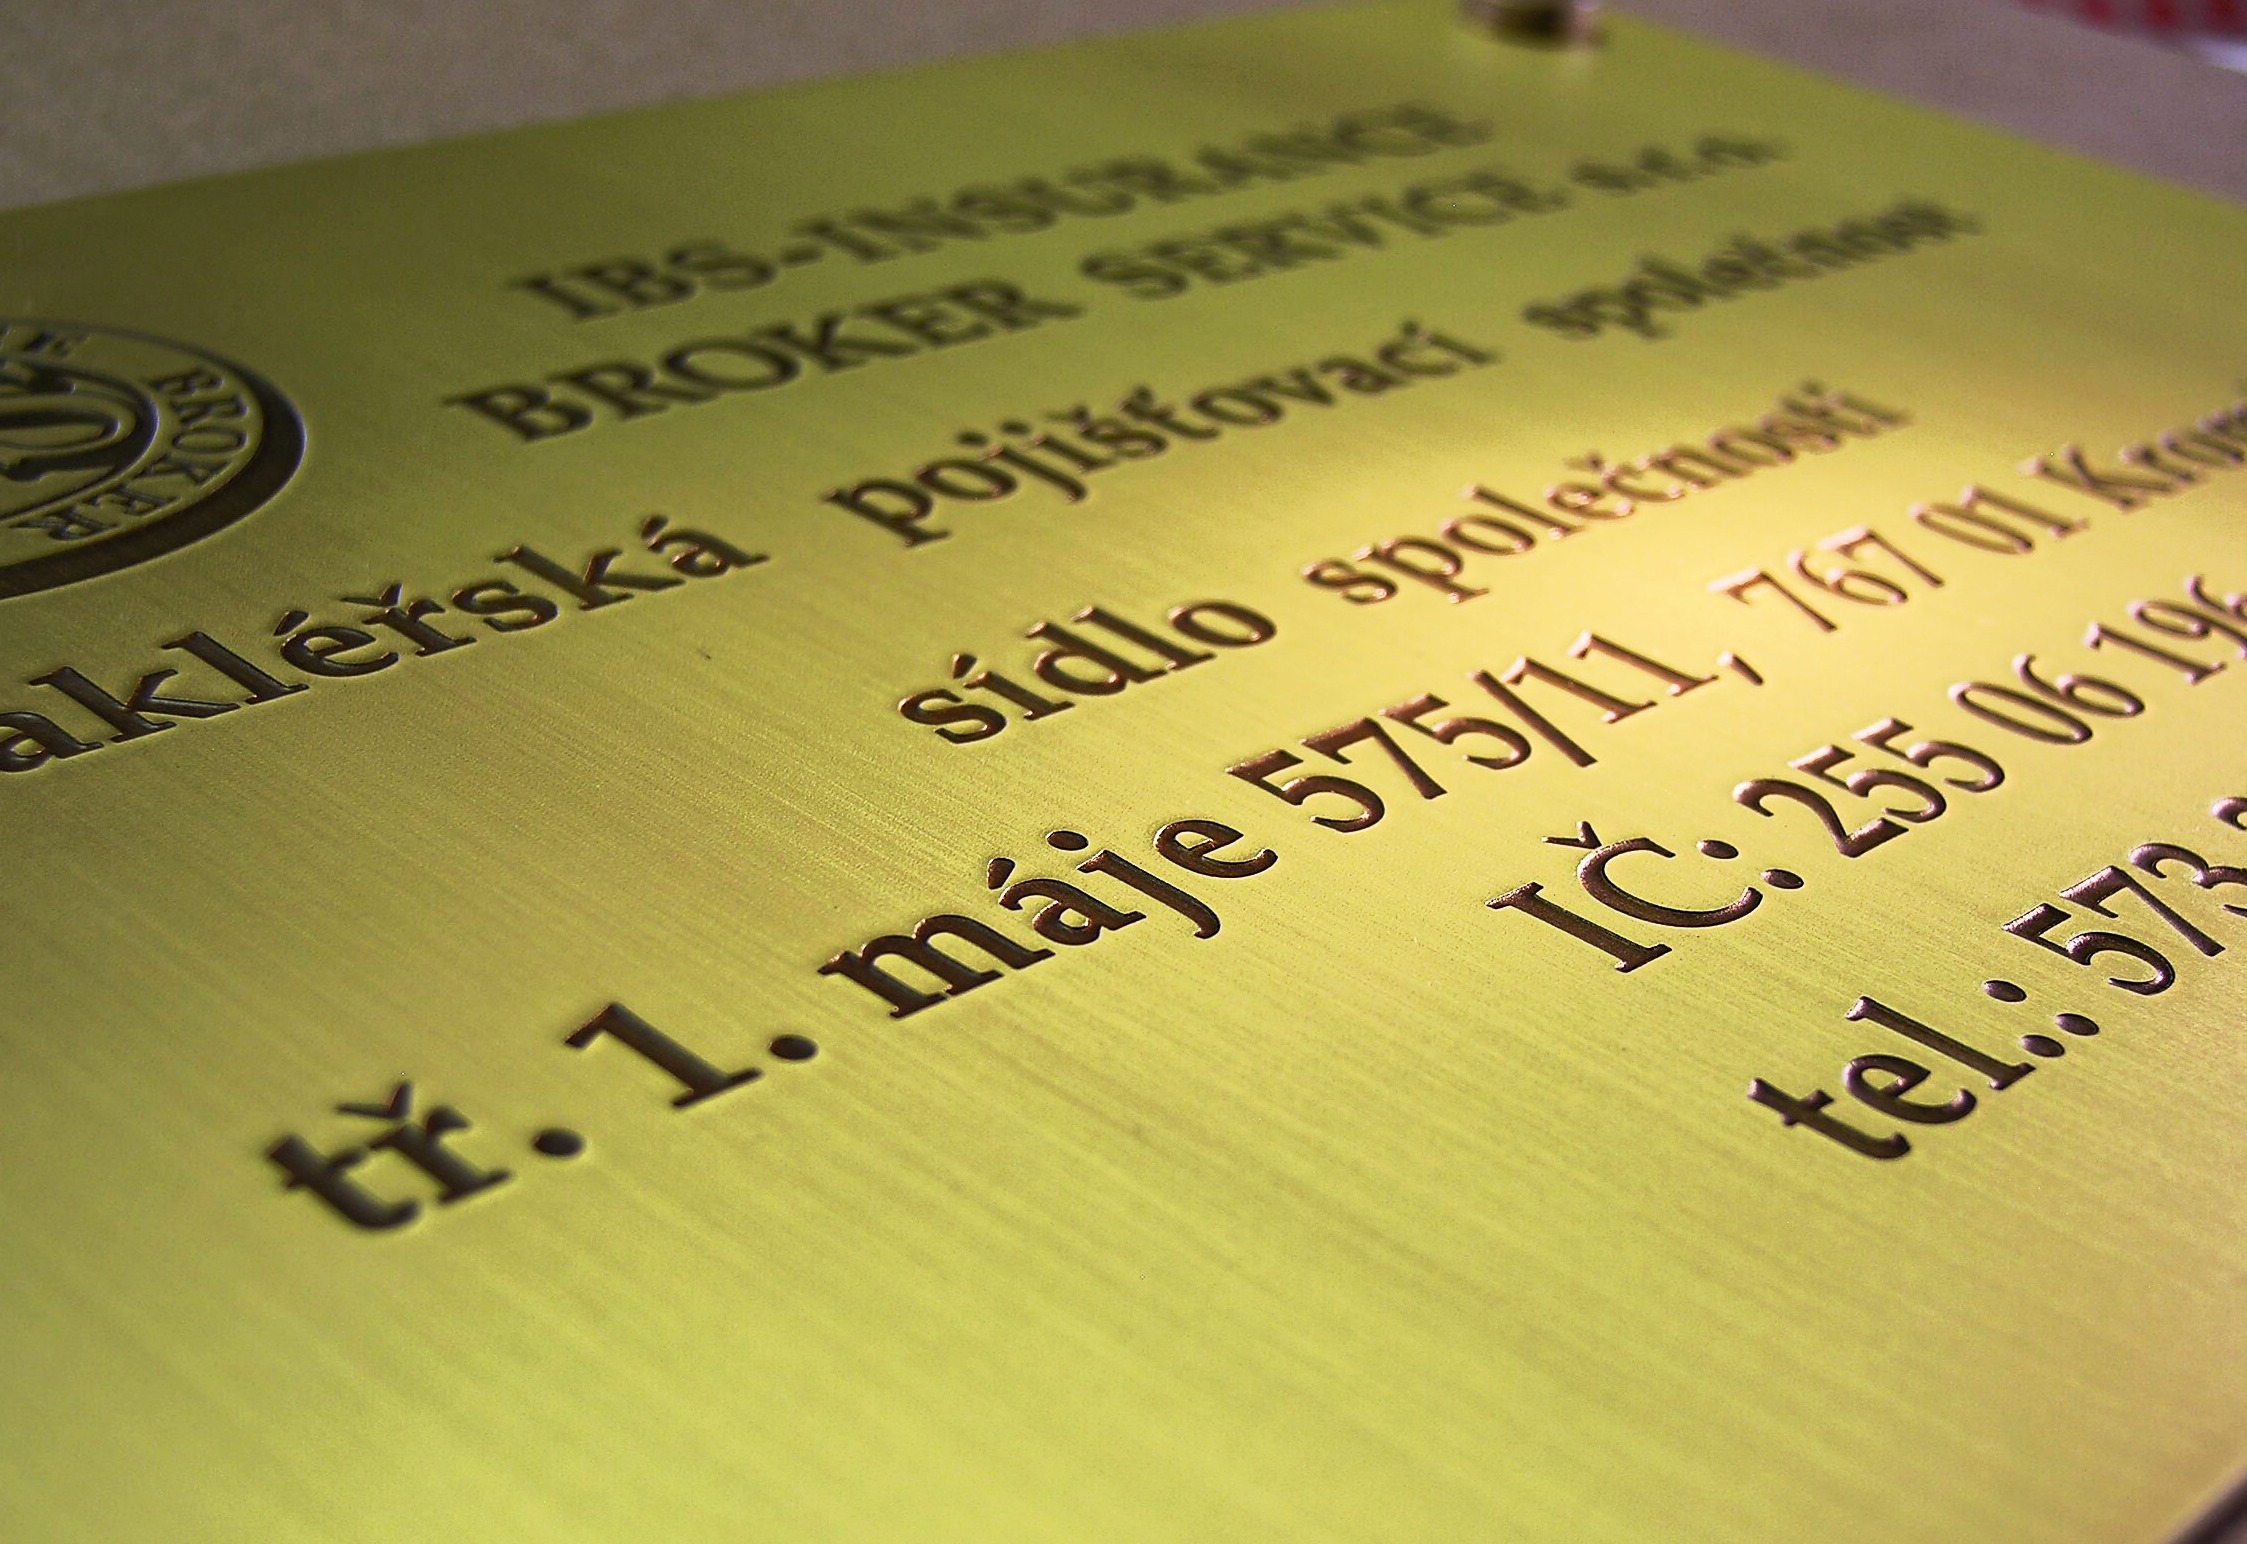 IBS-INSURANCE
BROKER SERVICE s.r.o.
BROKER
akléřská pojišťovací společnost
sídlo společnosti
tř. 1. máje 575/11, 767 01 Krom
IČ: 255 06 196
tel.: 573